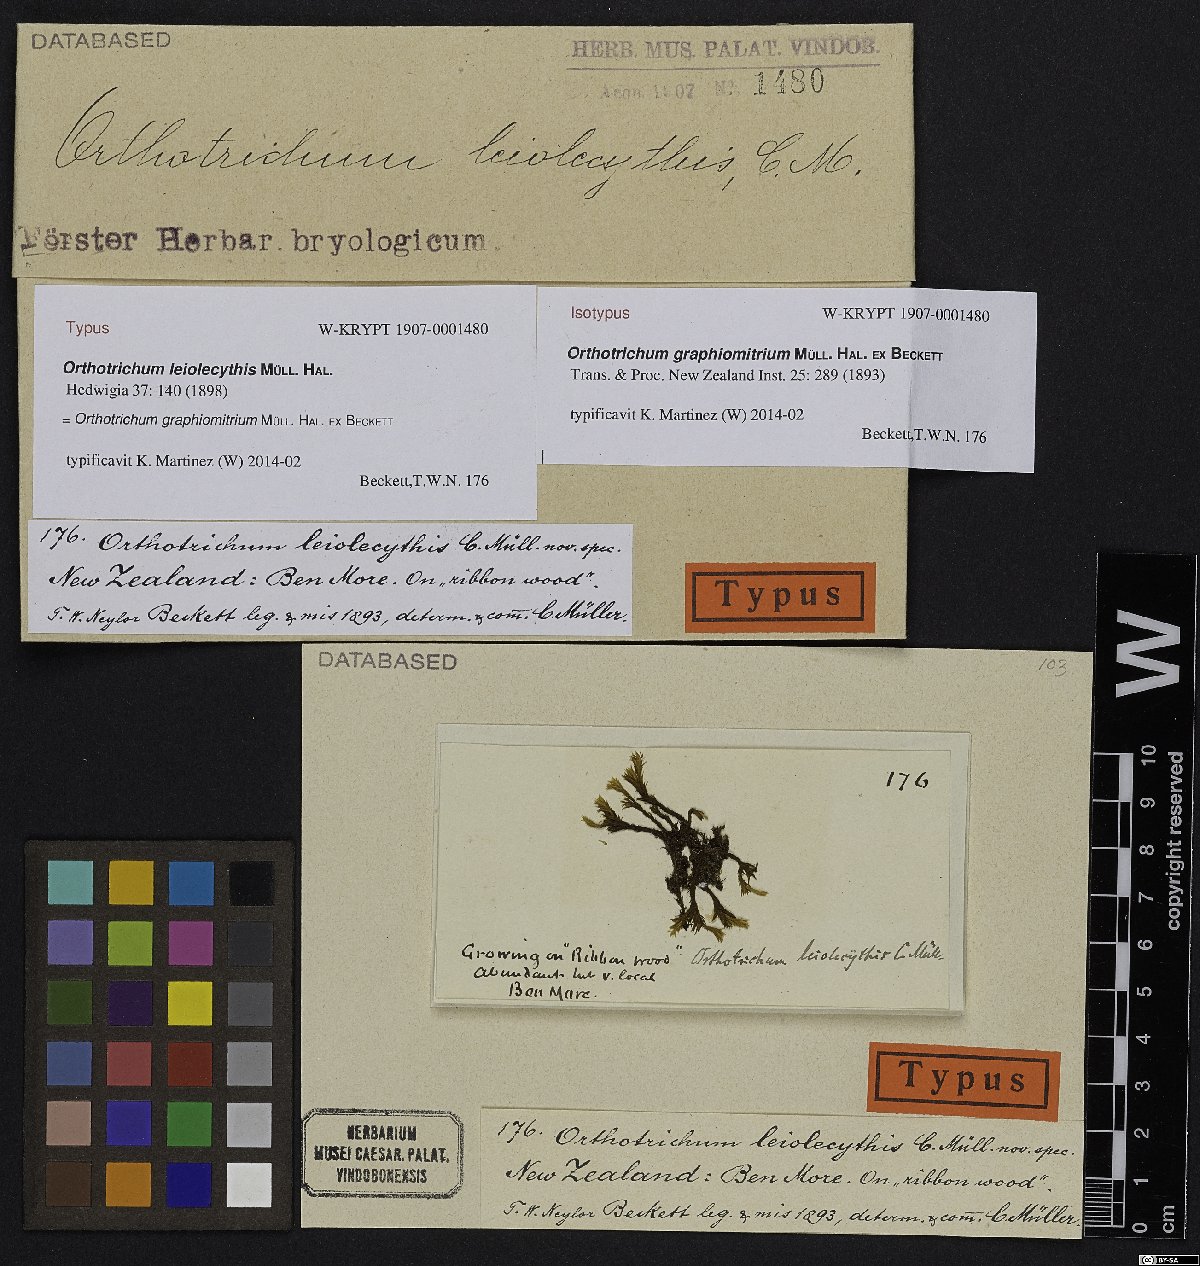 DATABASED
HERB. MUS. PALAT. VINDOB.
Acqu. 1907 No. 1480
Orthotrichum leiolecythis, C. M.
Förster Herbar. bryologicum.
Typus
W-KRYPT 1907-0001480
Orthotrichum leiolecythis MÜLL. HAL.
Hedwigia 37: 140 (1898)
= Orthotrichum graphiomitrium MÜLL. HAL. EX BECKETT
typificavit K. Martinez (W) 2014-02
Beckett,T.W.N. 176
Isotypus
W-KRYPT 1907-0001480
Orthotrichum graphiomitrium MÜLL. HAL. EX BECKETT
Trans. & Proc. New Zealand Inst. 25: 289 (1893)
typificavit K. Martinez (W) 2014-02
Beckett,T.W.N. 176
176. Orthotrichum leiolecythis C. Müll. nov. spec.
New Zealand: Ben More. On „ribbon wood".
T. W. Naylor Beckett leg. & mis 1893, determ. & com̄. C. Müller.
Typus
DATABASED
103
176
Growing on "Ribbon wood"
Abundant but v. local
Ben More.
Orthotrichum leiolecythis C Müll.
Typus
HERBARIUM
MUSEI CAESAR. PALAT.
VINDOBONENSIS
176. Orthotrichum leiolecythis C. Müll. nov. spec.
New Zealand: Ben More. On „ribbon wood".
T. W. Naylor Beckett leg. & mis 1893, determ. & com̄. C. Müller.
W
copyright reserved
0 1 2 3 4 5 6 7 8 9 10
cm
CC BY-SA